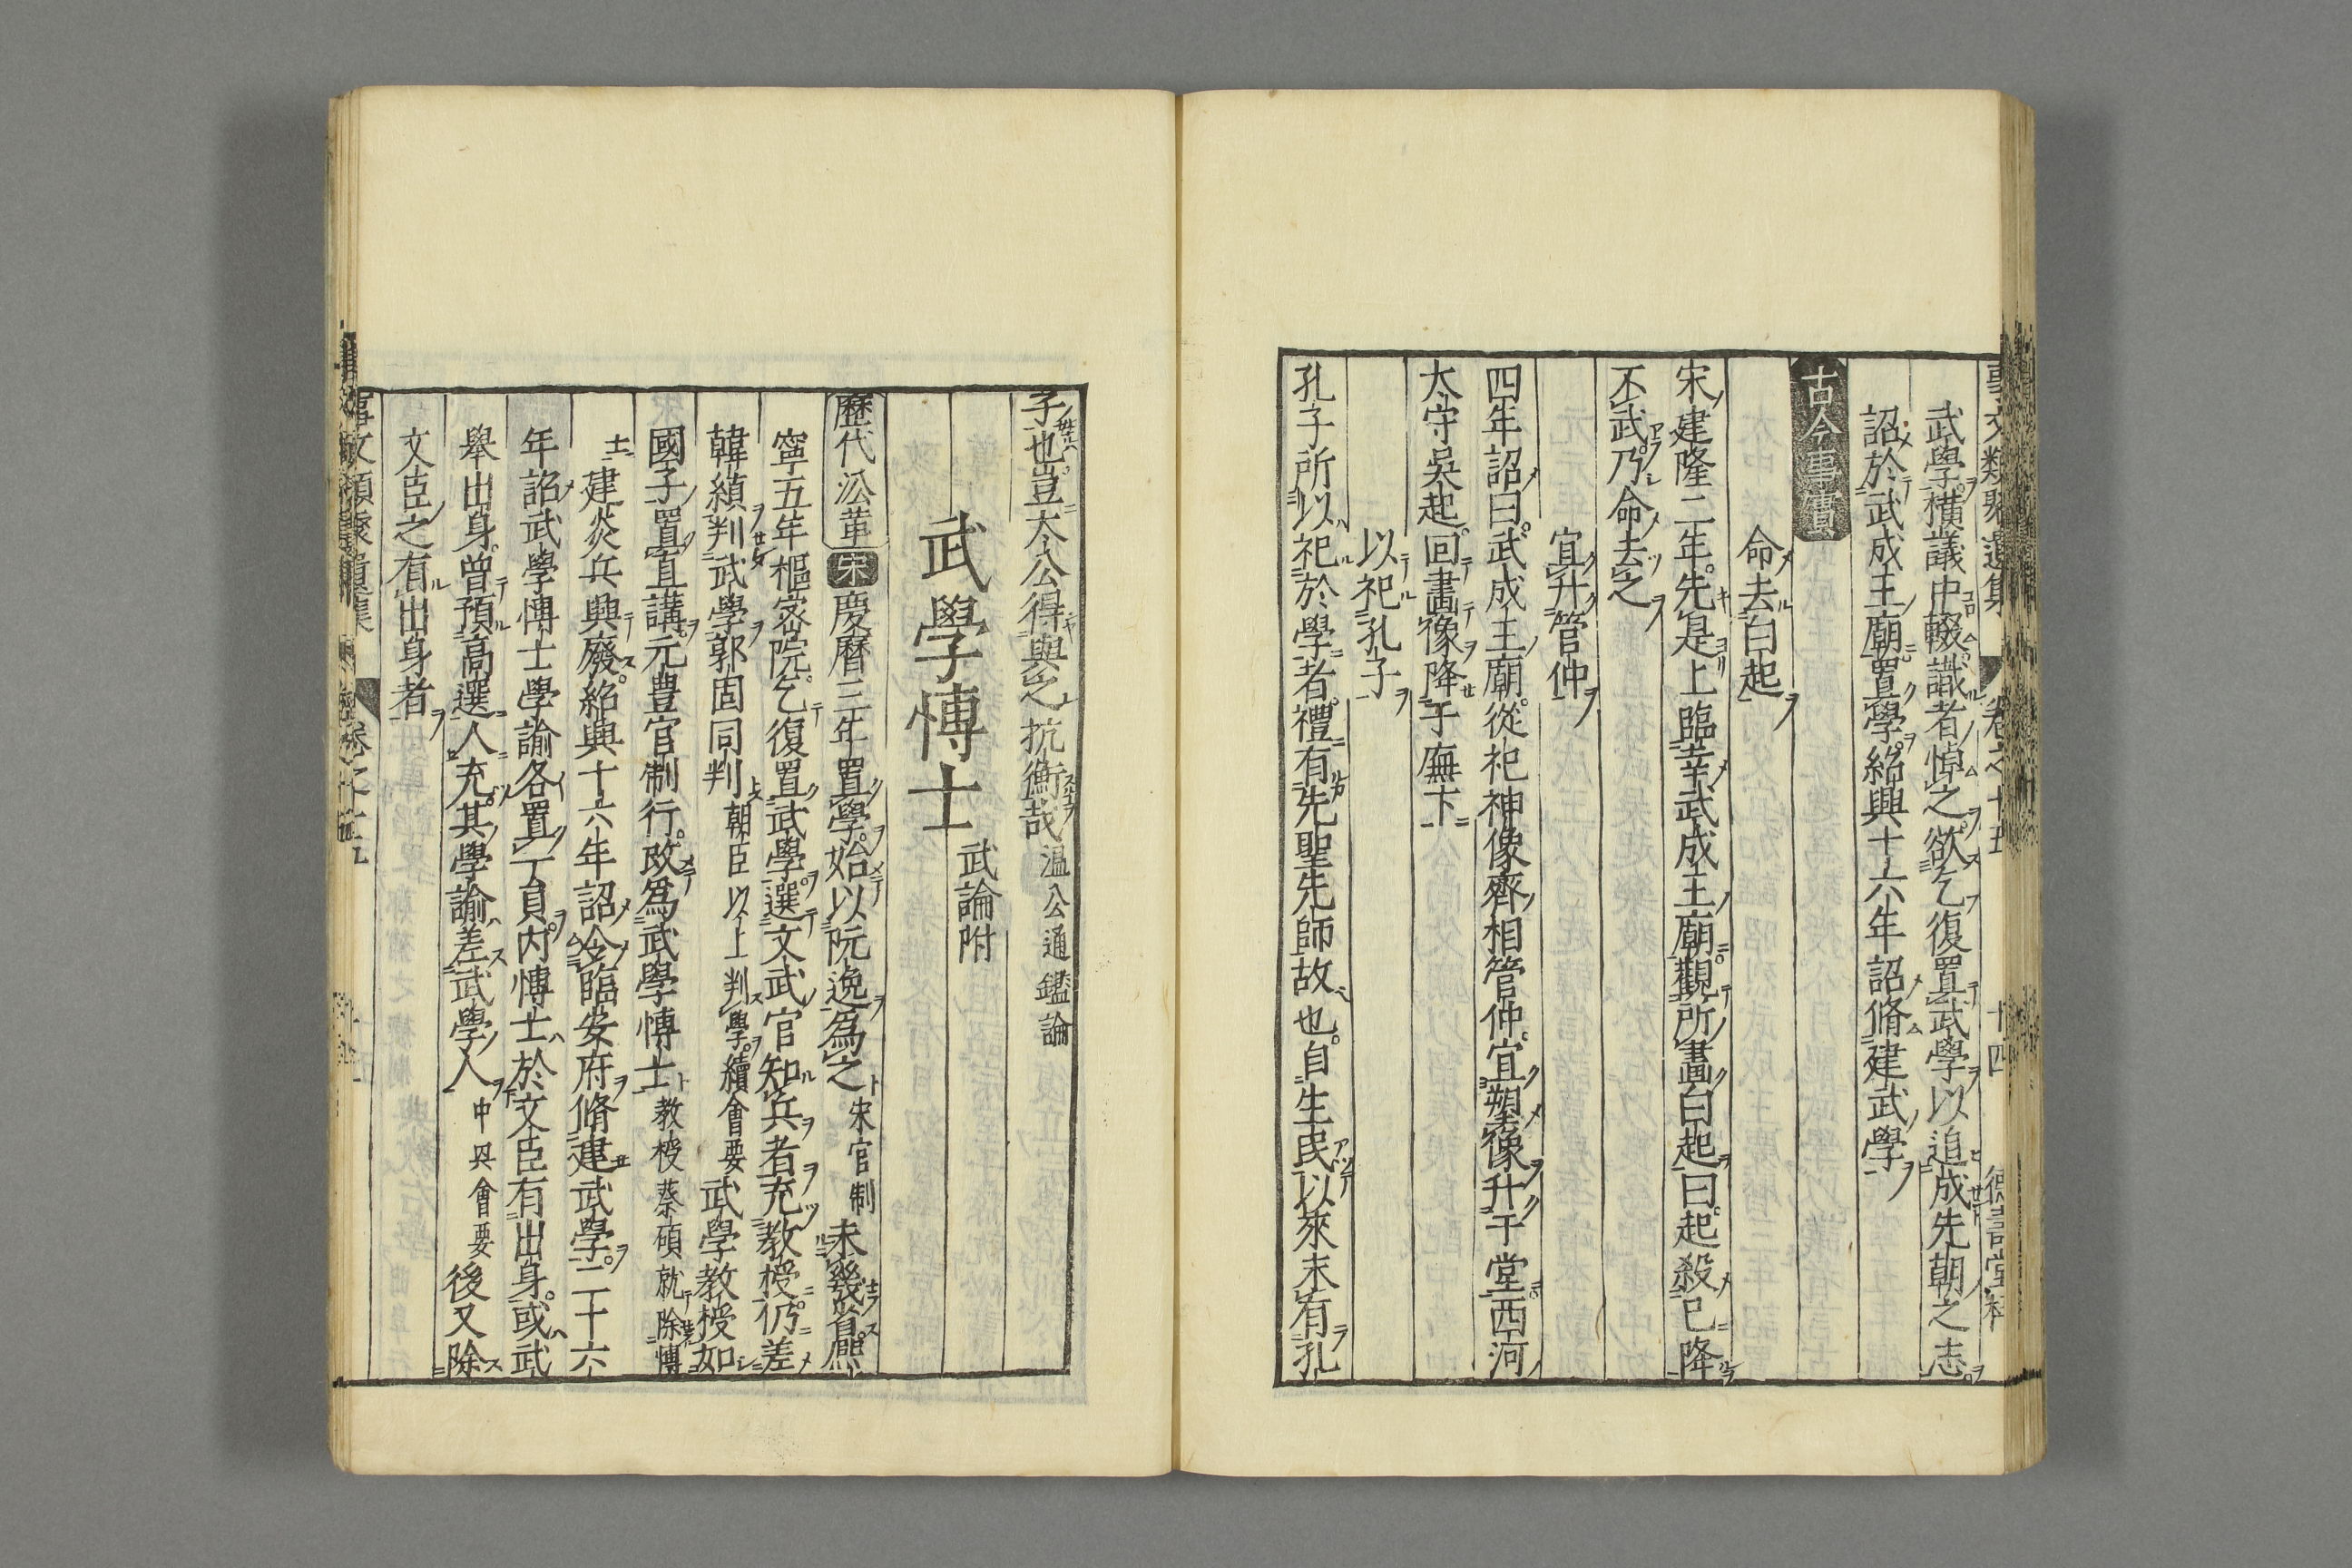 事文類聚遺集 卷之十五 十四 德壽堂梓
武學橫議中輟識者悼之欲乞復置武學以追成先朝之志
詔於武成王廟置學紹興十六年詔脩建武學
古今事實
命去白起
宋建隆二年先是上臨幸武成王廟觀所畫白起曰起殺已降
不武乃命去之
宜升管仲
四年詔曰武成王廟從祀神像齊相管仲宜塑像升于堂西河
太守吳起回畫像降于廡下
以祀孔子
孔子所以祀於學者禮有先聖先師故也自生民以來未有孔
子也豈太公得與之抗衡哉 温公通鑑論
武學博士 武論附
歷代沿革 宋 慶曆三年置學始以阮逸爲之 宋官制 未幾省熈
寧五年樞密院乞復置武學選文武官知兵者充教授仍差
韓縝判武學郭固同判 朝臣以上判學續會要 武學教授如
國子置直講元豊官制行改爲武學博士 教授蔡碩就除博
士 建炎兵興廢紹興十六年詔令臨安府脩建武學二十六
年詔武學博士學諭各置一員内博士於文臣有出身或武
舉出身曽預高選人充其學諭差武學人 中興會要 後又除
文臣之有出身者